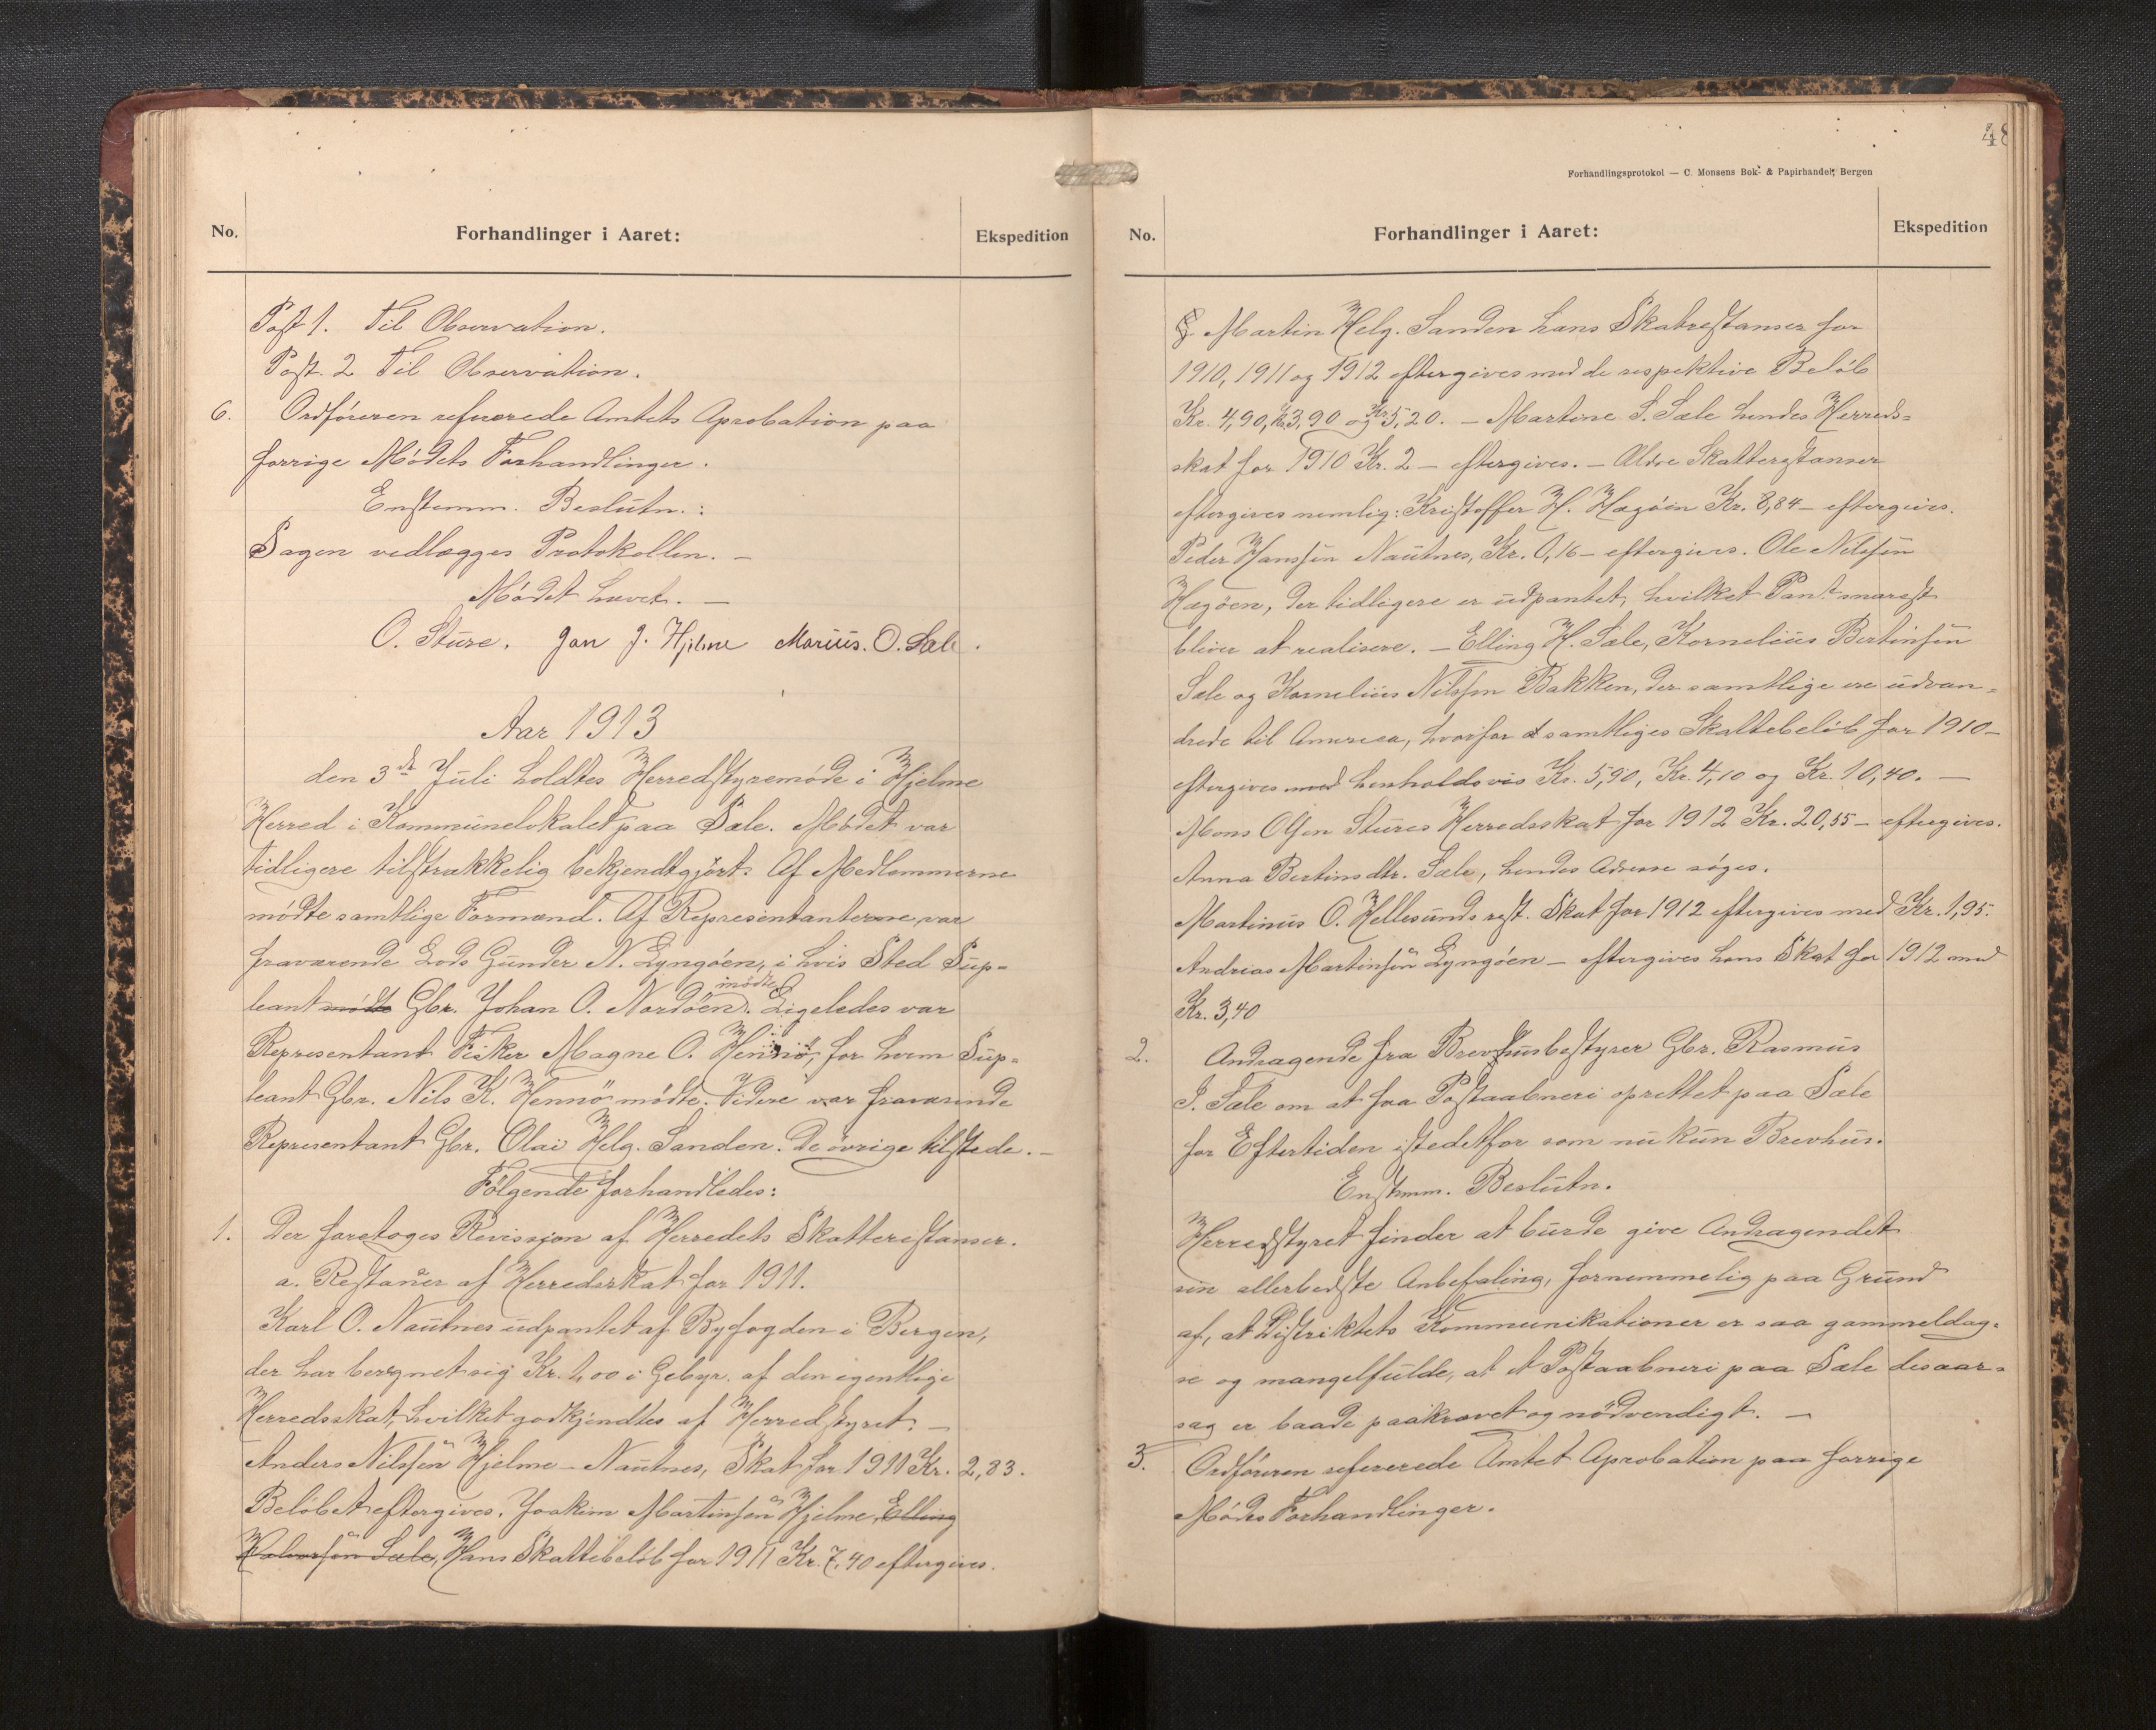 No.
Forhandlinger i Aaret:
Ekspedition
Post 1. Til Observation.
Post. 2 Til Observation.
6. Ordføreren refererede Amtets Aprobation paa
forrige Mødets Forhandlinger.
Enstemm. Beslutn.:
Sagen vedlægges Protokollen. —
Mødet hævet. —
O. Sture. Jan J. Hjelme Marius. O. Sæle.
Aar 1913
den 3de Juli holdtes Herredstyremøde i Hjelme
Herred i Kommunelokalet paa Sæle. Mødet var
tidligere tilstrækkelig bekjendtgjørt. Af Medlemmerne
mødte samtlige Formænd. Af Representanterne, var
fraværende Lods Gunder N. Lyngøen, i hvis Sted Sup-
leant mødte Gbr. Johan O. Nordøen mødte. Ligeledes var
Representant Fisker Magne O. Hennø, for hvem Sup-
leant Gbr. Nils K. Hennø mødte. Videre var fraværende
Representant Gbr. Olai Helg. Sanden. De øvrige tilstede. —
Følgende forhandledes:
1. Der foretoges Revissjon af Herredets Skatterestanser.
a. Restanser af Herredsskat for 1911.
Karl O. Nautnes udpantet af Byfogden i Bergen,
der har beregnet sig Kr. 1,00 i Gebyr. af den egentlige
Herredsskat, hvilket godkjendtes af Herredstyret. —
Anders Nilssøn Hjelme - Nautnes, Skat for 1911 Kr. 2,83.
Beløbet eftergives. Joakim Martinsøn Hjelme, Elling
Halvorsøn Sæle, Hans Skattebeløb for 1911 Kr. 7,40 eftergives.
48
Forhandlingsprotokol — C. Monsens Bok- & Papirhandel, Bergen
No.
Forhandlinger i Aaret:
Ekspedition
Martin Helg. Sanden hans Skatrestanser for
1910, 1911 og 1912 eftergives med de respektive Beløb
Kr. 4,90, Kr. 3,90 og Kr. 5,20. — Martine S. Sæle hendes Herreds-
skat for 1910 Kr. 2 — eftergives. — Ældre Skatterestanser
eftergives nemlig: Kristoffer H. Hægøin Kr. 8,84 — eftergives.
Peder Hanssøn Nautnes, Kr. 0,16 — eftergives. Ole Nilssøn
Hægøen, der tidligere er udpantet, hvilket Pant snarest
bliver at realisere. — Elling H. Sæle, Kornelius Bertinsøn
Sæle og Kornelius Nilssøn Bakken, der samtlige ere udvan-
drede til America, hvorfor samtliges Skattebeløb for 1910 —
eftergives med henholdsvis Kr. 5,90, Kr. 4,10 og Kr. 10,40. —
Mons Olsen Stures Herredsskat for 1912 Kr. 20,55 — eftergives.
Anna Bertinsdtr. Sæle, hendes Adresse søges.
Martinus O. Hellesunds rest. Skat for 1912 eftergives med Kr. 1,95.
Andrias Martinsøn Lyngøen — eftergives hans Skat for 1912 med
Kr. 3,40
2. Andragende fra Brevhusbestyrer Gbr. Rasmus
J. Sæle om at faa Postaabneri oprettet paa Sæle
for Eftertiden istedetfor som nu kun Brevhus.
Enstemm. Beslutn.
Herredstyret finder at burde give Andragendet
sin allerbedste Anbefaling, fornemmelig paa Grund
af, at Distriktets Kommunikationer er saa gammeldag-
se og mangelfulde, at et Postaabneri paa Sæle desaar-
sag er baade paakrævet og nødvendigt. —
3. Ordføreren refererede Amtet Aprobation paa forrige
Mødes Forhandlinger.